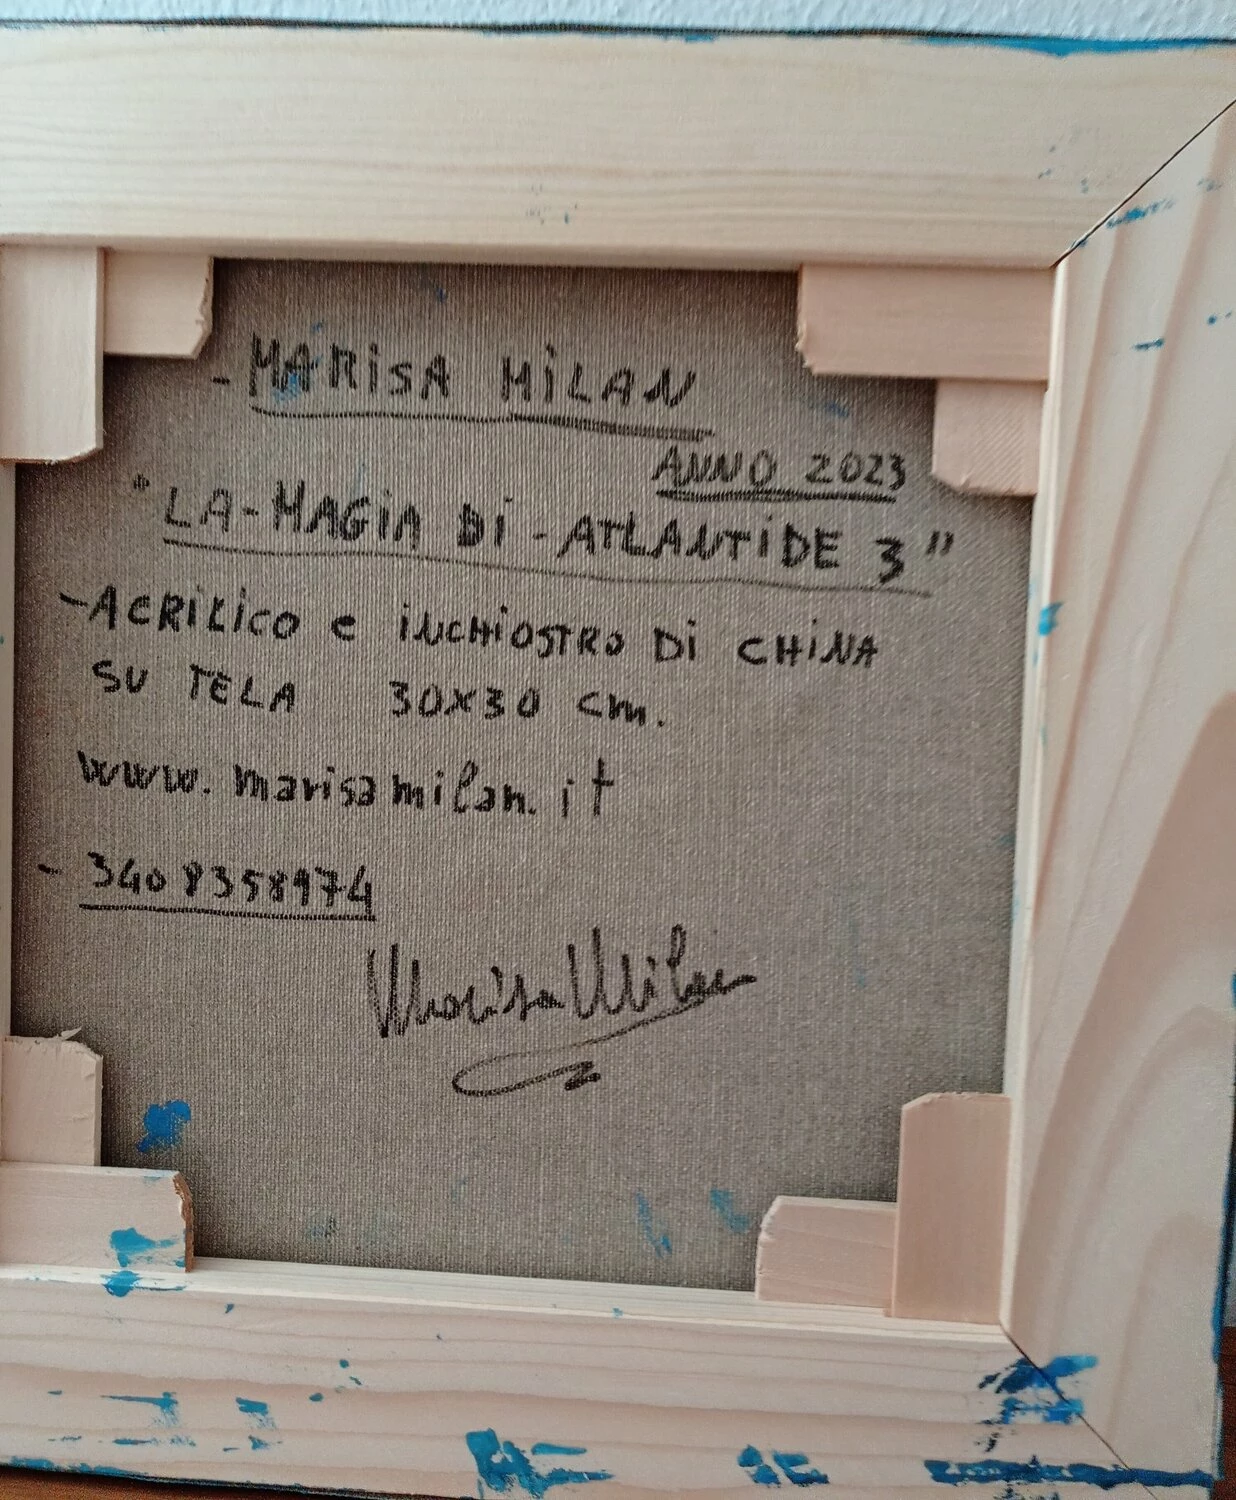 - MARiSA MiLAN
ANNO 2023
"LA-MAGiA Di-ATLANTiDE 3"
-ACRiLiCO e iNCHiOSTRO Di CHiNA
SU TELA 30X30 cm.
www.marisamilan.it
- 3408358974
Marisa Milan